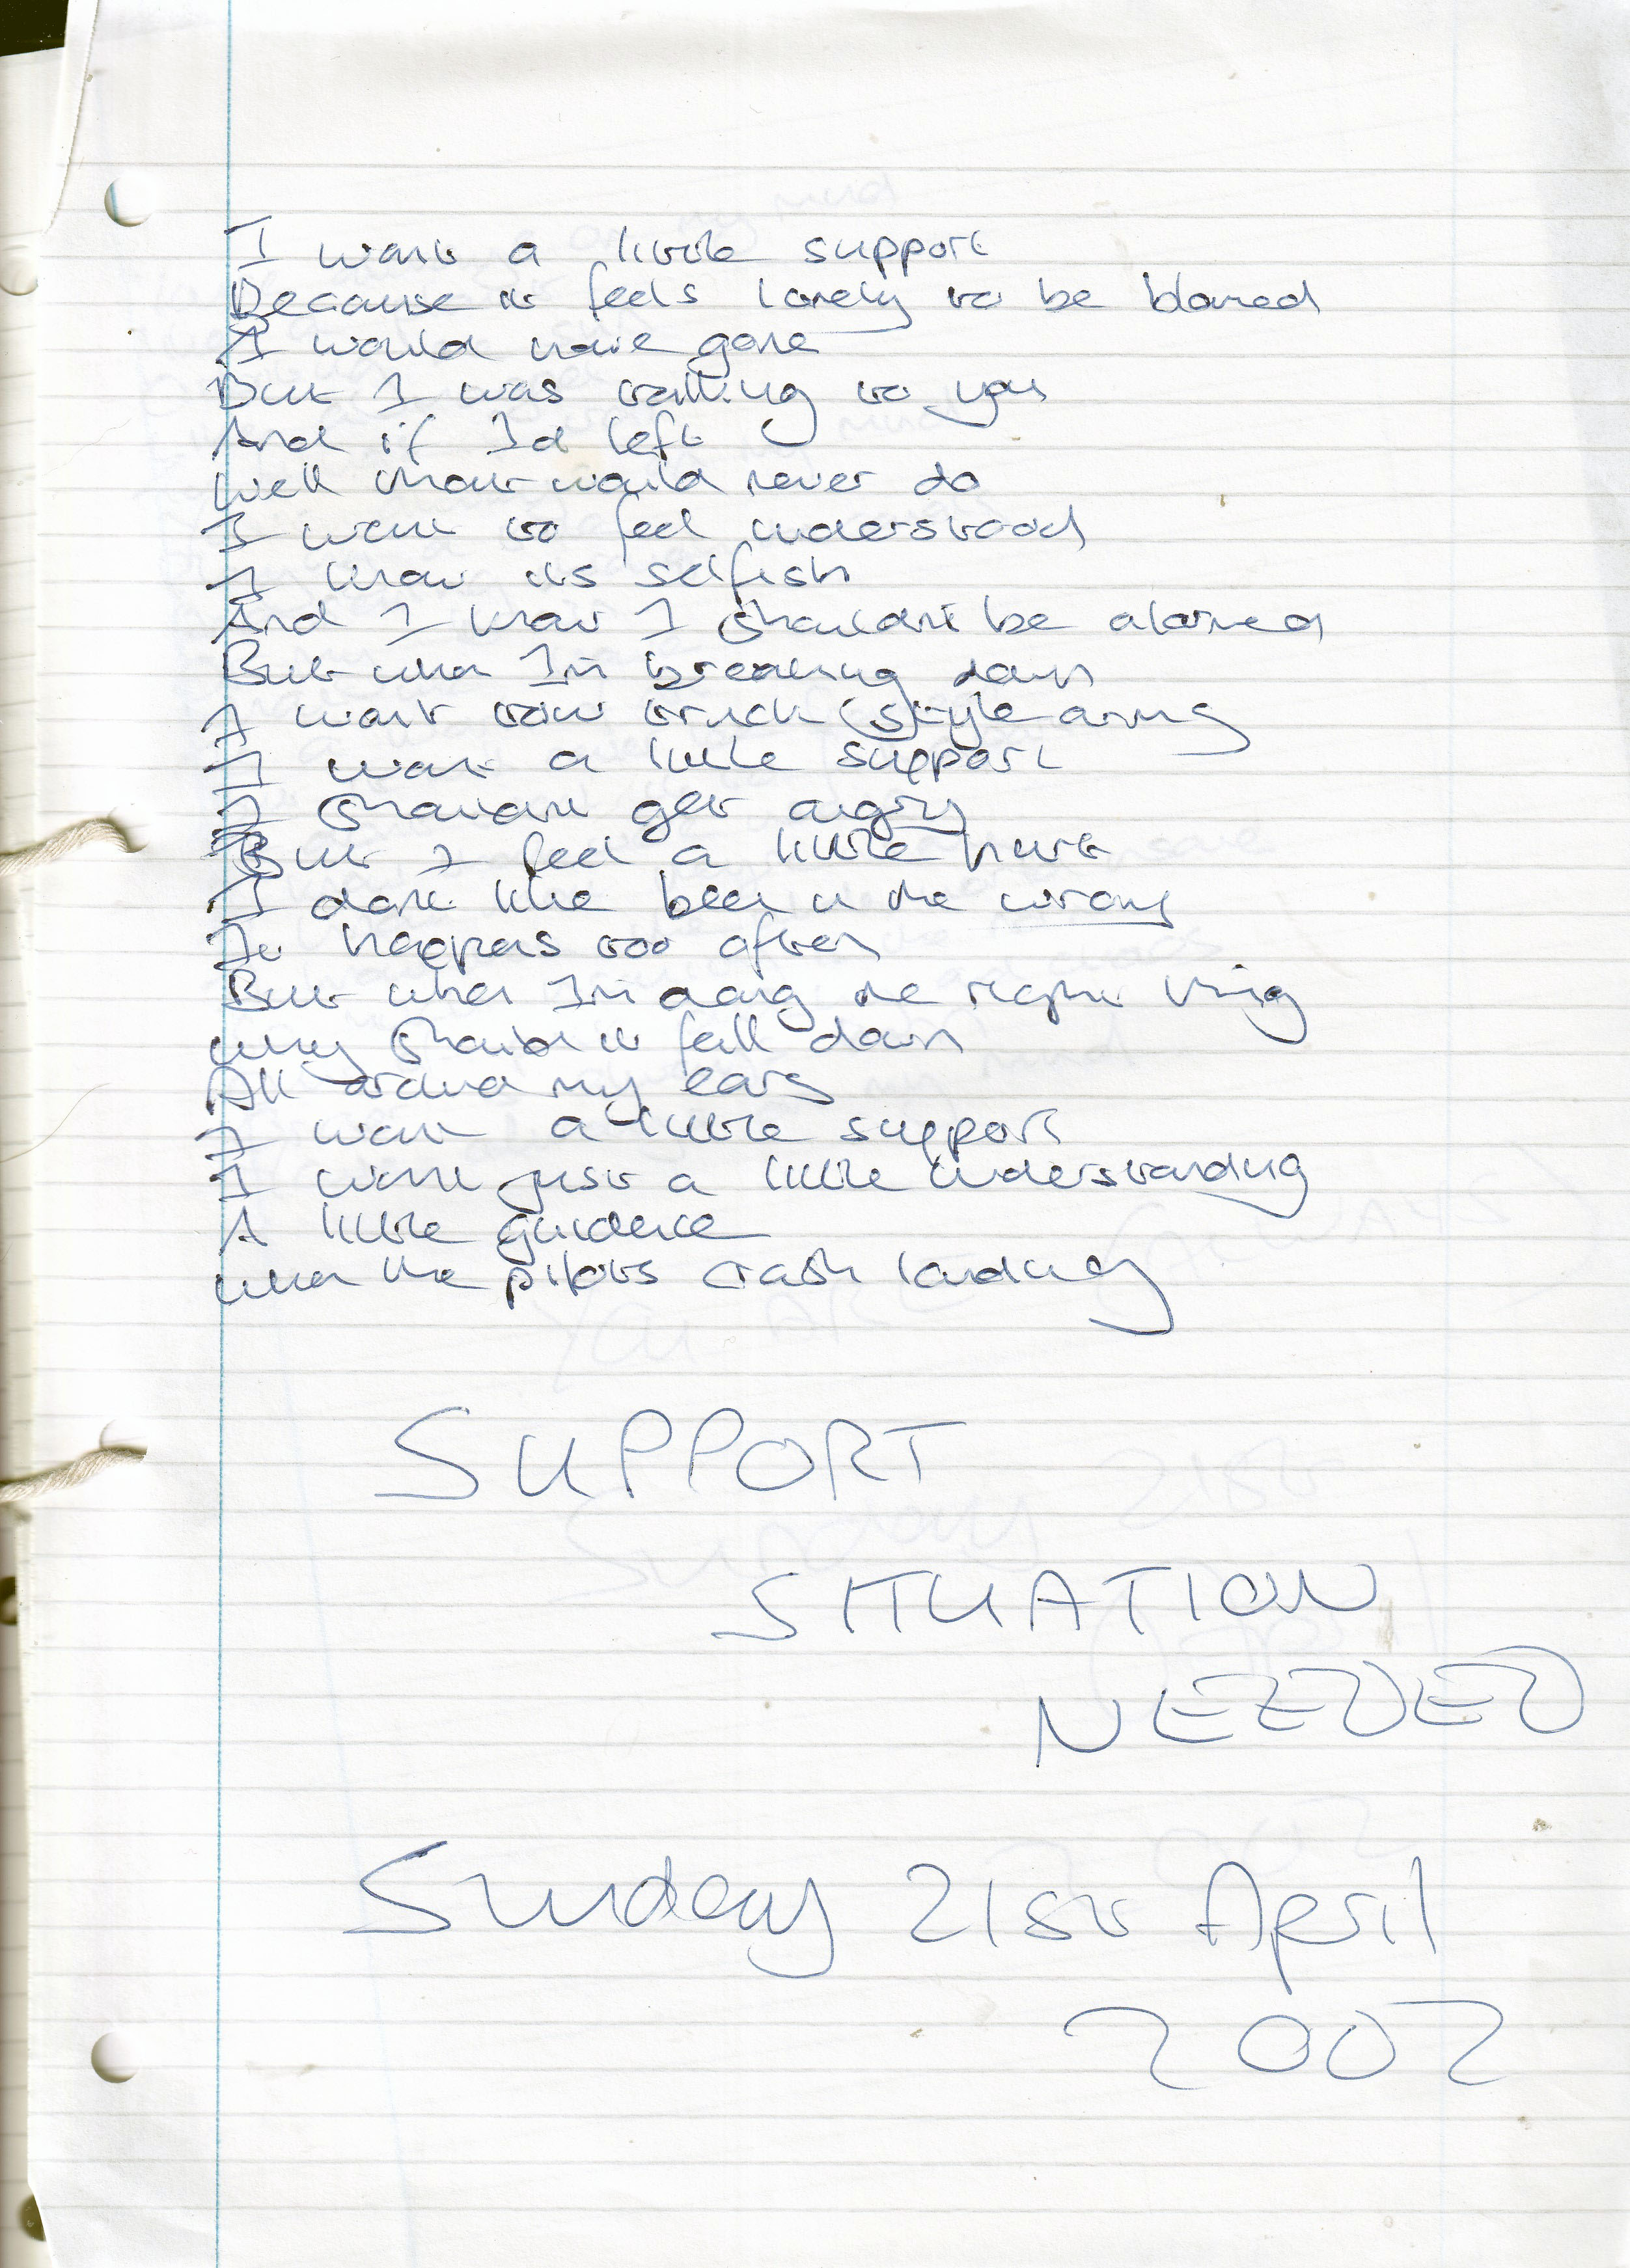 I want a little support
Because it feels lonely to be blamed
I would have gone
But I was talking to you
And if Id left
Well that would never do
I want to feel understood
I know its selfish
And I know I shouldnt be alarmed
But when Im breaking down
I want tow truck style arms
I want a little support
I shouldnt get angry
But I feel a little hurt
I dont like been in the wrong
It happens too often
But when Im doing the right thing
Why should it fall down
All around my ears
I want a little support
I want just a little understanding
A little guidence
When the pilots crash landing
SUPPORT
SITUATION
NEEDED
Sunday 21st April
2002